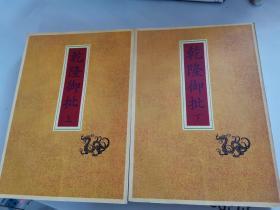 乾隆御批
上
乾隆御批
下